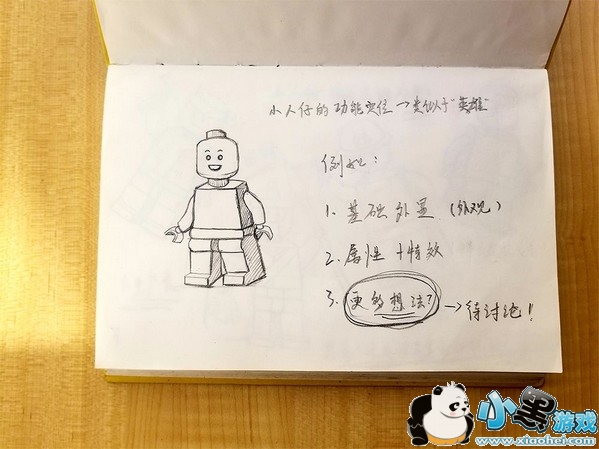 小人仔的功能定位 → 类似于"英雄"
例如：
1. 基础外显（外观）
2. 属性+特效
3. 更多想法？ → 待讨论！
小黑游戏
www.xiaohei.com